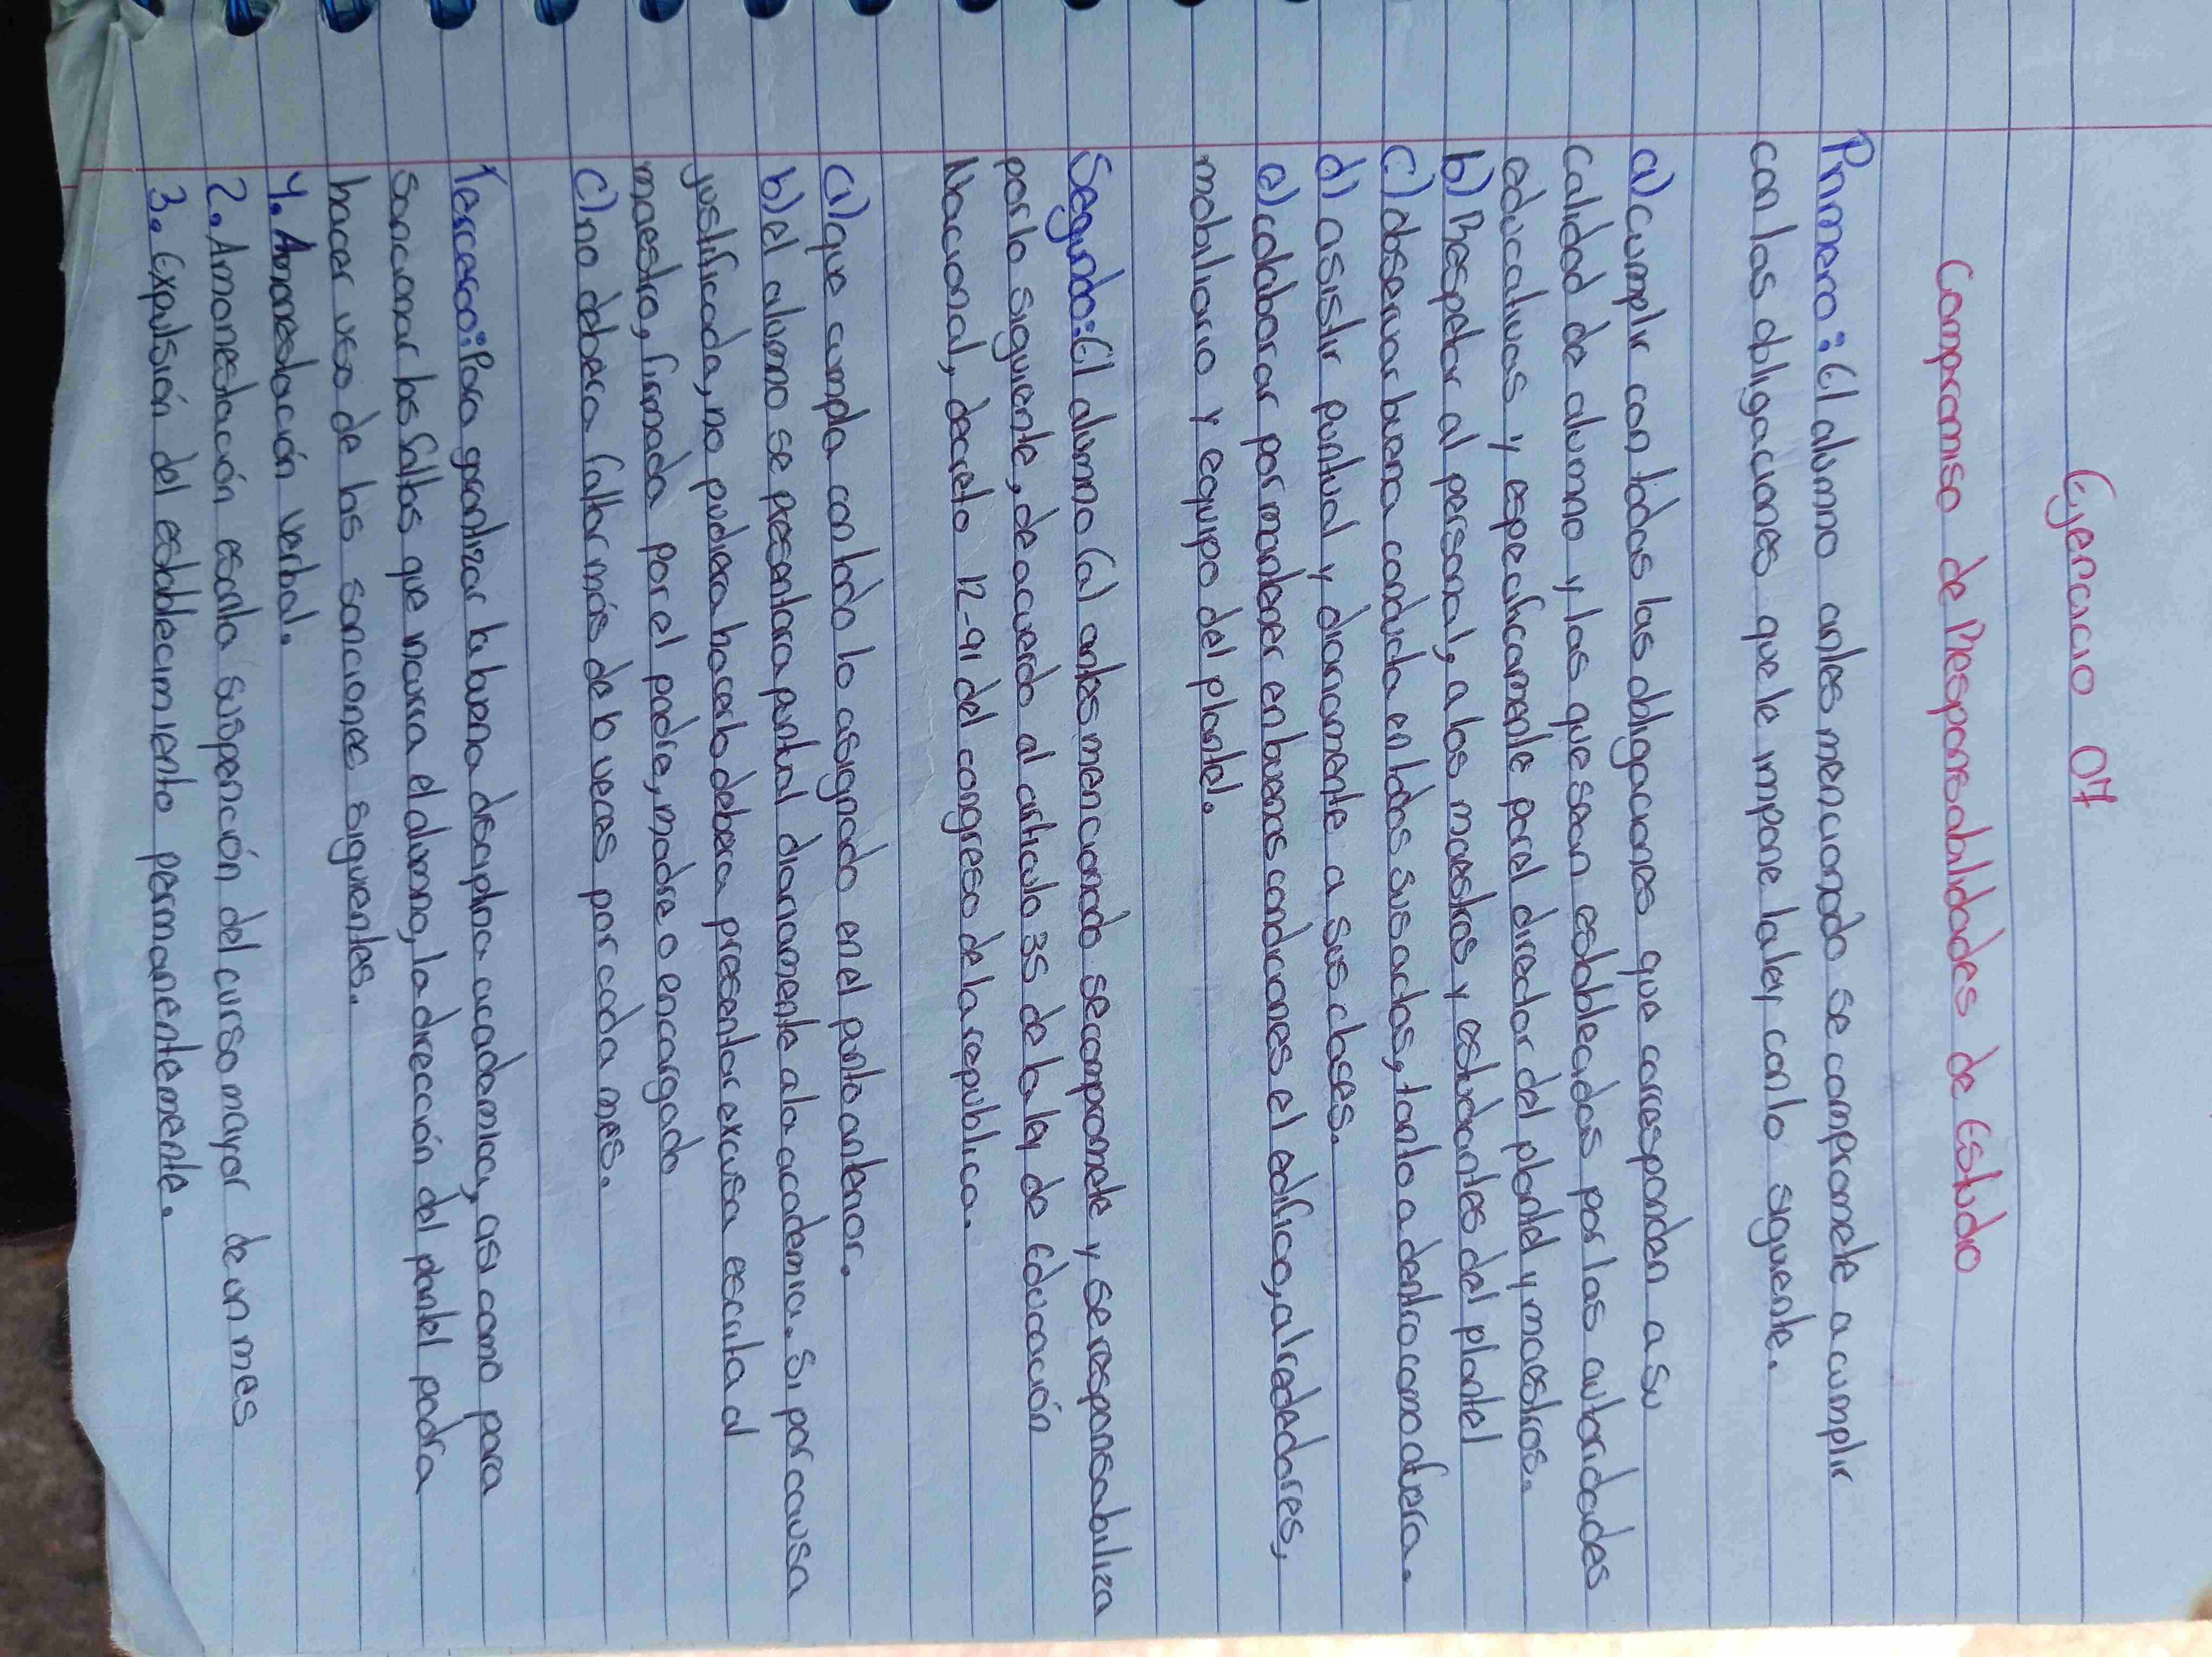 Ejercicio 07
Compromiso de Responsabilidades de Estudio
Primero: El alumno antes mencionado se compromete a cumplir
con las obligaciones que le impone la ley con lo siguiente.
a) cumplir con todas las obligaciones que corresponden a su
calidad de alumno y las que sean establecidas por las autoridades
educativas y específicamente por el director del plantel y maestros.
b) Respetar al personal, a los maestros y estudiantes del plantel
c) observar buena conducta en todos sus actos, tanto adentro como afuera.
d) asistir puntual y diariamente a sus clases.
e) colaborar por mantener en buenas condiciones el edifico, alrededores,
mobiliario y equipo del plantel.
Segundo: El alumno (a) antes mencionado se compromete y se responsabiliza
por lo siguiente, de acuerdo al articulo 35 de la ley de Educación
Nacional, decreto 12-91 del congreso de la republica.
a) que cumpla con todo lo asignado en el punto anterior.
b) el alumno se presentara puntual diariamente a la academia. Si por causa
justificada, no pudiera hacerlo debera presentar excusa escrita al
maestro, firmada por el padre, madre o encargado
c) no debera faltar más de 6 veces por cada mes.
Tercero: Para grantizar la buena disciplina academica, asi como para
sancionar las faltas que incurra el alumno, la dirección del plantel podra
hacer uso de las sanciones siguientes.
1. Amonestación verbal.
2. Amonestación escrita suspención del curso mayor de un mes
3. Expulsión del establecimiento permanentemente.